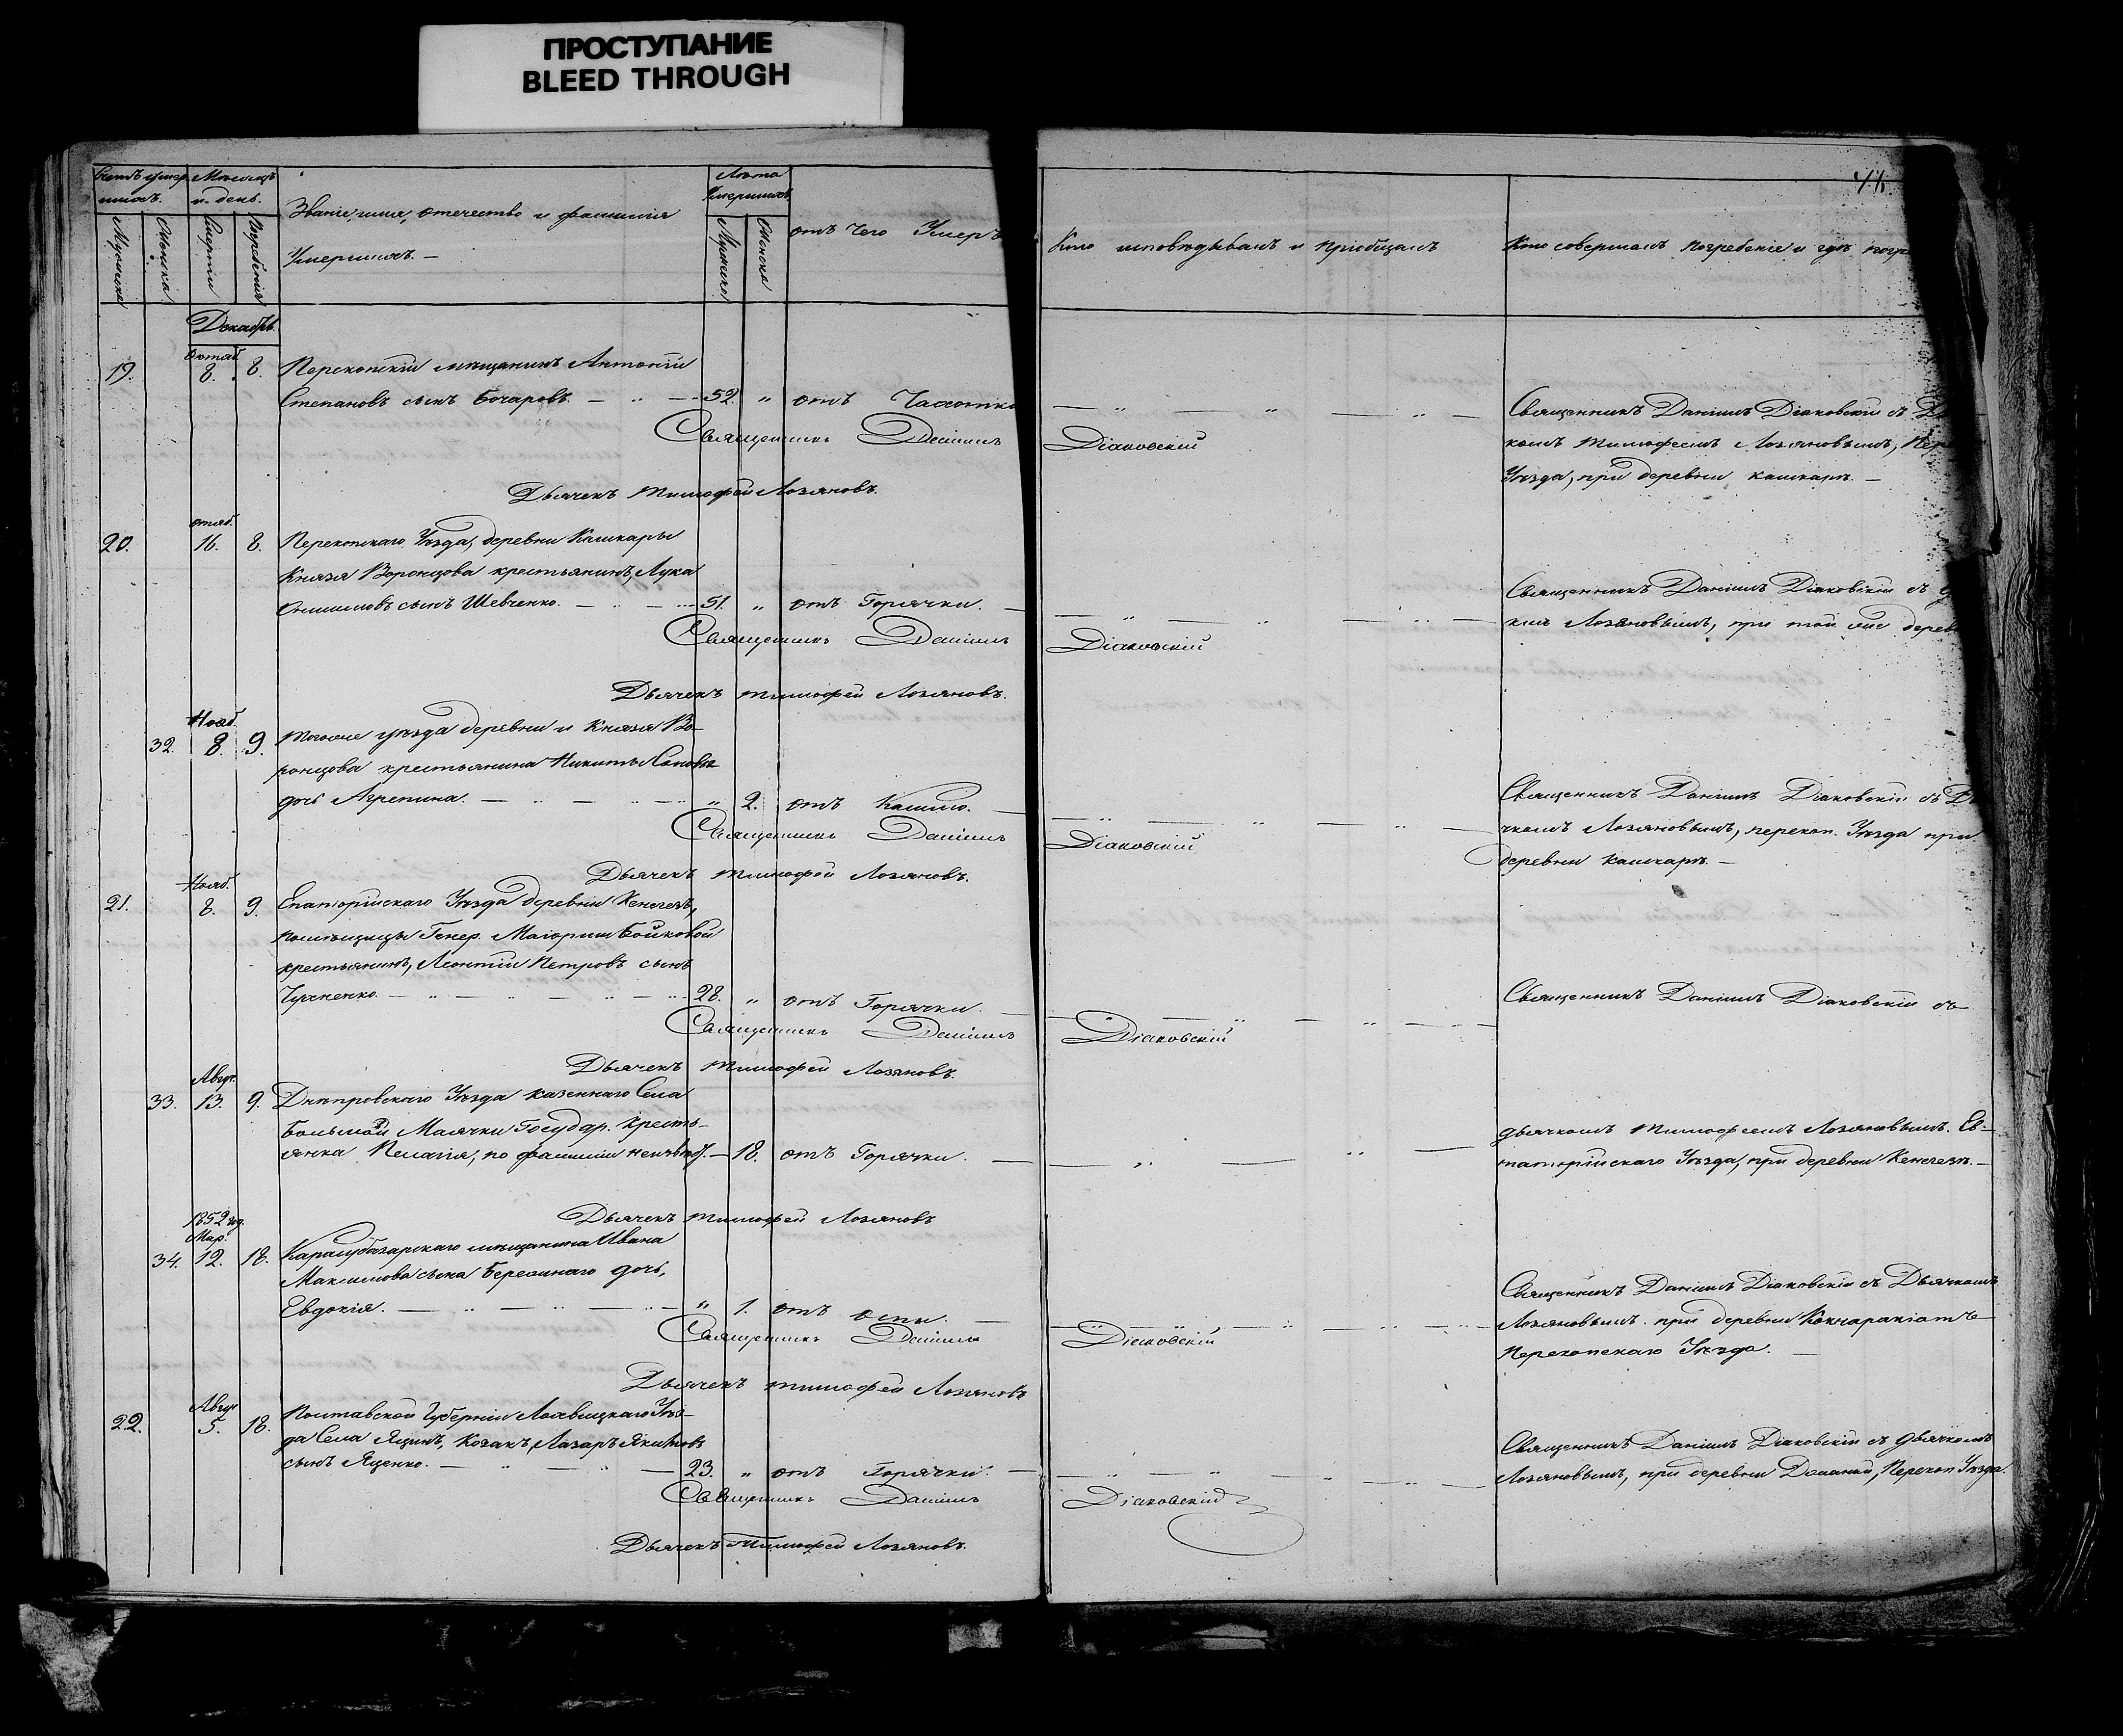 ПРОСТУПАНИЕ
BLEED THROUGH
Счетъ умер-
шихъ.
Мѣсяцъ
и день.
Званіе, имя, отечество и фамилія
Умершихъ. —
Лѣта
Умершихъ
отъ чего Умеръ
Мужеска
Женска
Смерти
Погребенія
Мужеска
Женска
Кто исповѣдывалъ и пріобщалъ
Кто совершалъ погребеніе и гдѣ
Декабрь.
19. Октяб. 8. 8. Перекопскій мѣщанинъ Антоній
Степановъ сынъ Бочаровъ. — 52. " отъ Чахотки
Священникъ Даніилъ Діаковскій
Дьячекъ Тимофей Лозяновъ.
Священникъ Даніилъ Діаковскій съ
комъ Тимофеемъ Лозяновымъ,
Уѣзда, при деревни Кашкарѣ. —
20. октяб. 16. 8. Перекопскаго Уѣзда, деревни Кашкары
Князя Воронцова крестьянинъ, Лука
Онисимовъ сынъ Шевченко. — 51. " отъ Горячки. —
Священникъ Даніилъ Діаковскій
Дьячекъ Тимофей Лозяновъ.
Священникъ Даніилъ Діаковскій съ
Лозяновымъ, при той же
32. Нояб. 8. 9. Тогоже уѣзда деревни и Князя Во-
ронцова крестьянина Никиты
дочь Агрепина. — " 2. отъ Кашлю. —
Священникъ Даніилъ Діаковскій
Дьячекъ Тимофей Лозяновъ.
Священникъ Даніилъ Діаковскій съ
чкомъ Лозяновымъ, перекоп. Уѣзда при
деревни Кашкарѣ. —
21. Нояб. 8. 9. Евпаторійскаго Уѣзда деревни Кенегезъ,
помѣщицы Генер. Маіорши Бойковой
крестьянинъ, Леонтій Петровъ сынъ
28. " отъ Горячки. —
Священникъ Даніилъ Діаковскій
Дьячекъ Тимофей Лозяновъ.
Священникъ Даніилъ Діаковскій съ
33. Авгус. 13. 9. Днѣпровскаго Уѣзда казеннаго Села
Большой Маячки Государ. кресть-
янка Пелагія, по фамиліи — 18. отъ Горячки. —
Дьячекъ Тимофей Лозяновъ
дьячкомъ Тимофеемъ Лозяновымъ. Ев-
паторійскаго Уѣзда, при деревни Кенегезъ. —
1852 год.
34. Мар. 12. 18. Карасубазарскаго мѣщанина Ивана
Максимова сына дочь,
Евдокія. — " 1. отъ Оспы. —
Священникъ Даніилъ Діаковскій
Дьячекъ Тимофей Лозяновъ
Священникъ Даніилъ Діаковскій съ Дьячкомъ
Лозяновымъ. при деревни
Перекопскаго Уѣзда. —
22. Авгус 5. 18. Полтавской Губерніи Лохвицкаго Уѣз-
да Села Яцинъ, Козакъ, Лазарь Якимовъ
сынъ Яценко. — 23. " отъ Горячки. —
Священникъ Даніилъ Діаковскій
Дьячекъ Тимофей Лозяновъ.
Священникъ Даніилъ Діаковскій съ дьячкомъ
Лозяновымъ, при деревни Перекоп Уѣзда.